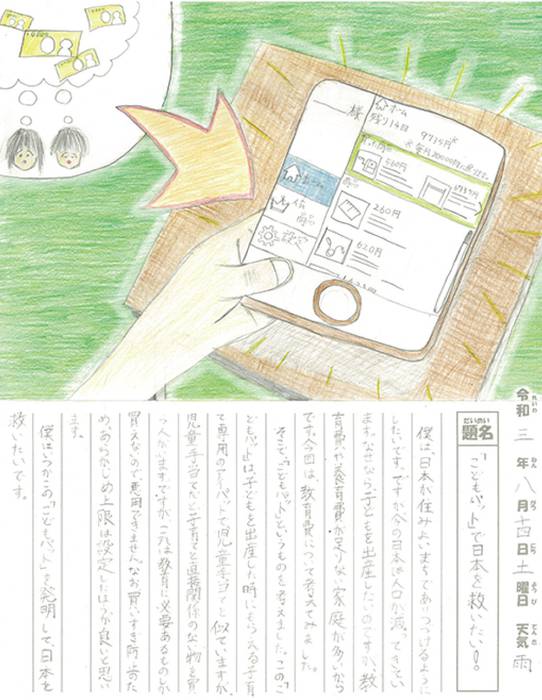 様
ホーム
残り14日 9734円
560円
商品
260円
620円
設定
令和三年八月十四日土曜日 天気雨
れいわ ねん がつ にち ようび てんき
だいめい
題名
「こどもパッド」で日本を救いたい!!
僕は、日本が住みよいまちでありつづけるよう
したいです。ですが今の日本は人口が減ってきてい
ます。なぜなら、子どもを出産したいのですが、教
育費や養育費が足りない家庭が多いから
です。今回は、教育費について考えてみました。
そこで、「こどもパッド」というものを考えました。この「こ
どもパッド」は、子どもを出産した時にもらえる子育
て専用のアイパッドで児童手当と似ていますが、
児童手当てだと子育てと直接関係のない物を買
う人がいます。ですが、これは教育に必要あるものしか
買えないので、悪用できません。なお買いすぎ防止のた
め、あらかじめ上限は設定したほうが良いと思い
ます。
僕はいつかこの「こどもパッド」を発明して、日本を
救いたいです。